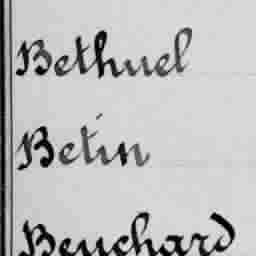 Bethuel
Betin
Beuchard